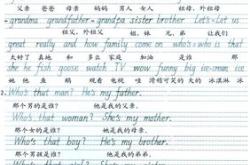 父亲 爸爸 母亲 妈妈 男人 女人 祖母、外祖母
grandma grandfather = grandpa sister brother Let's = Let us
祖父、外祖父 姐、妹 兄、弟 让我们
great really and how family come on who's = who is that
太好了 真地 和 多么 家庭 加油 是谁 那
she he fish goose watch TV wow funny big ice-cream our
她 他 鱼 鹅 观看电视 哇 滑稽可笑的 大的 冰淇淋
2. Who's that man? He's my father.
那个男的是谁? 他是我的父亲。
Who's that woman? She's my mother.
那个女的是谁? 她是我的母亲。
Who's that boy? He's my brother.
那个男孩是谁? 他是我的兄弟。